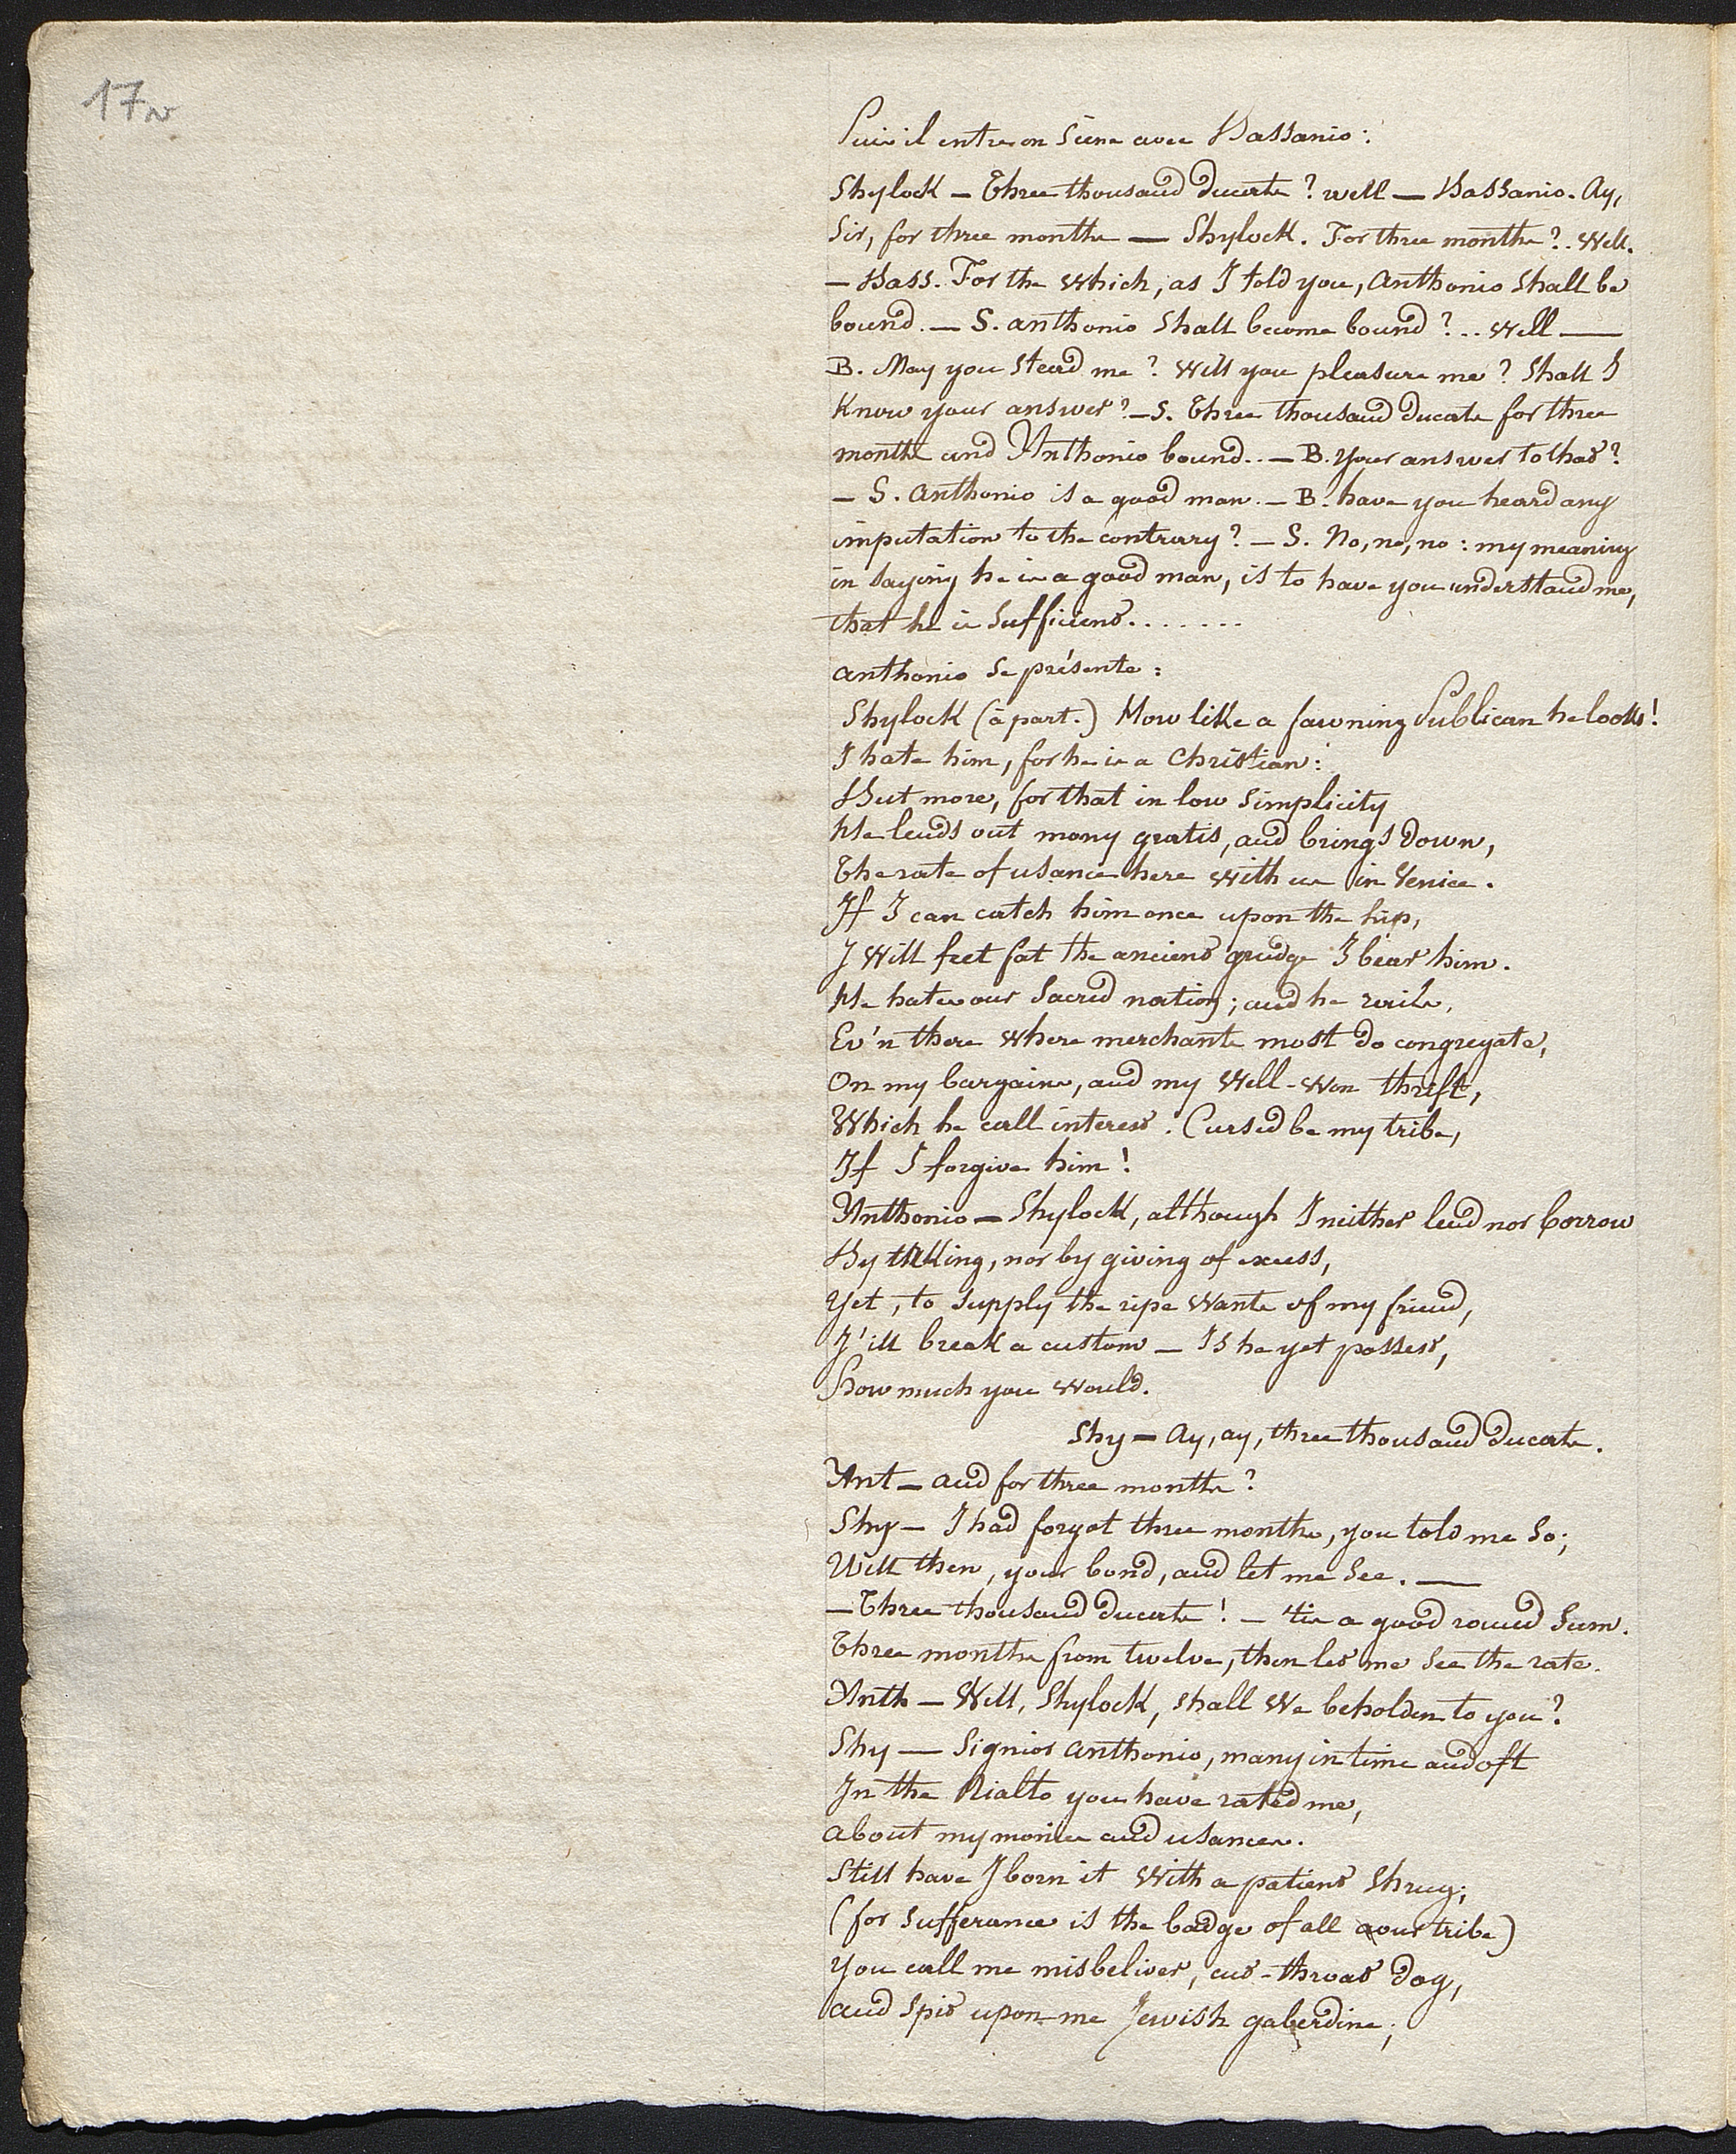 17v
Puis il entre en scène avec Bassanio:
Shylock — Three thousand ducats? well — Bassanio. Ay,
Sir, for three months — Shylock. For three months?.. Well.
— Bass. For the which, as I told you, Anthonio shall be
bound. — S. Anthonio shall become bound?.. Well —
B. May you stead me? Will you pleasure me? Shall I
Know your answer? — S. Three thousand ducats for three
months and Anthonio bound.. — B. Your answer to that?
— S. Anthonio is a good man. — B. have you heard any
imputation to the contrary? — S. No, no, no: my meaning
in saying he is a good man, is to have you understand me,
that he is sufficient.......
Anthonio se présente:
Shylock (à part.) How like a fawning Publican he looks!
I hate him, for he is a Christian:
But more, for that in low simplicity
He lends out mony gratis, and brings down,
The rate of usance here with us in Venice.
If I can catch him once upon the hip,
I will feet fat the ancient grudge I bear him.
He hates our Sacred nation; and he rails,
Ev'n there where merchants most do congregate,
On my bargains, and my well-won thrift,
Which he call interest. Cursed be my tribe,
If I forgive him!
Anthonio — Shylock, although I neither lend nor borrow
By taking, nor by giving of excess,
Yet, to supply the ripe wants of my friend,
I'ill break a custom — Is he yet possest,
How much you would.
Shy — Ay, ay, three thousand ducats.
Ant — And for three months?
Shy — I had forgot three months, you told me so;
Well then, your bond, and let me see. —
— Three thousand ducats! — 'tis a good round sum.
Three months from twelve, then let me see the rate.
Anth — Well, Shylock, shall we beholden to you?
Shy — Signior Anthonio, many in time and oft
In the Rialto you have rated me,
About my monies and usances.
Still have I born it with a patient shrug;
(for sufferance is the badge of all our tribe)
You call me misbeliver, cut-throat dog,
And spit upon me Jewish gaberdine;